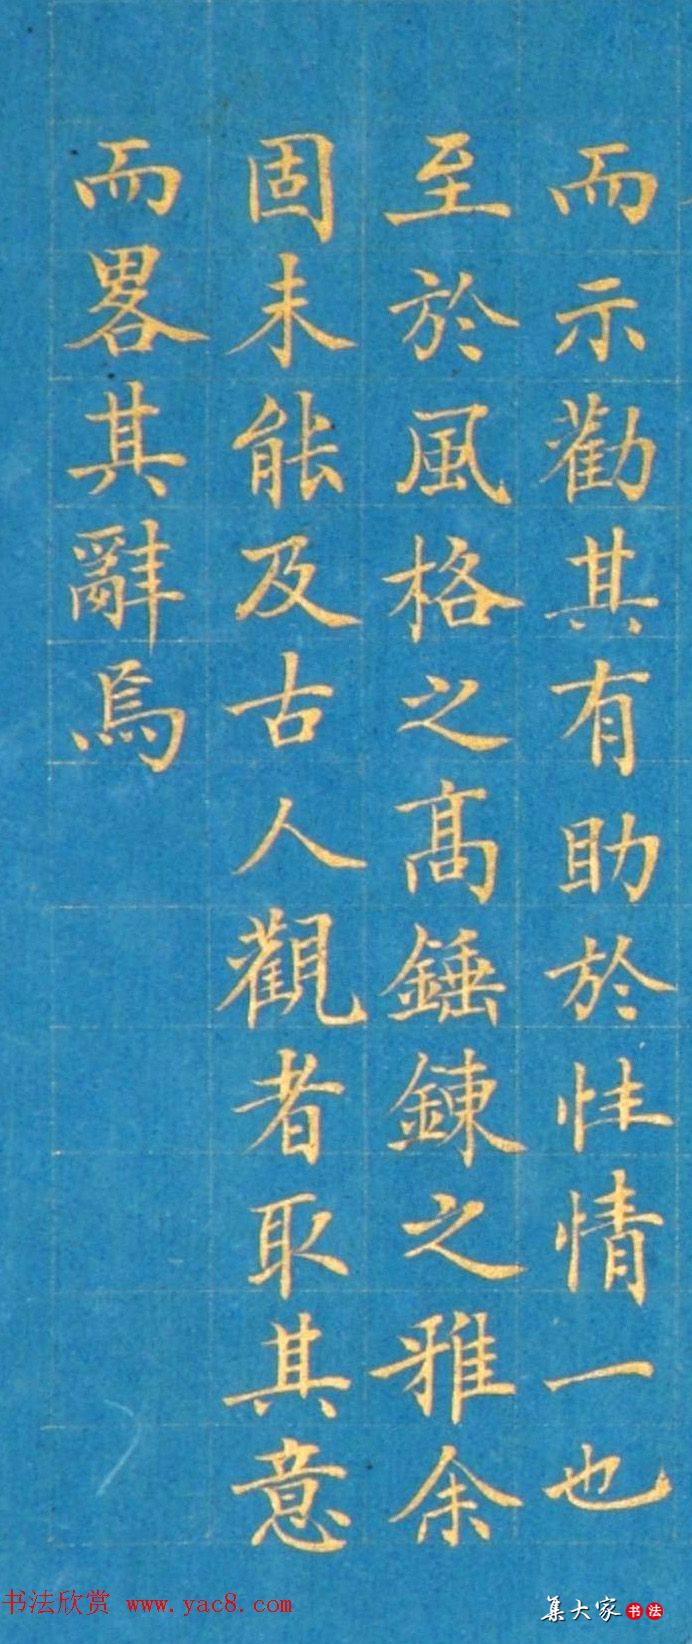 而示勸其有助於性情一也
至於風格之高錘鍊之雅余
固未能及古人觀者取其意
而畧其辭焉
书法欣赏 www.yac8.com
集大家书法